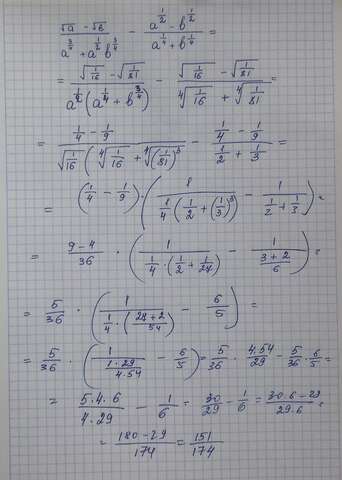 (√a − √b)/(a^(3/4) + a^(1/2) b^(3/4)) − (a^(1/2) − b^(1/2))/(a^(1/4) + b^(1/4)) =
= (√(1/16) − √(1/81))/(a^(1/2)(a^(1/4) + b^(3/4))) − (√(1/16) − √(1/81))/(∜(1/16) + ∜(1/81)) =
= (1/4 − 1/9)/(√(1/16)(∜(1/16) + ∜((1/81)^3))) − (1/4 − 1/9)/(1/2 + 1/3) =
= (1/4 − 1/9) · (1/(1/4(1/2 + (1/3)^3)) − 1/(1/2 + 1/3)) =
= (9−4)/36 · (1/(1/4 · (1/2 + 1/27)) − 1/((3+2)/6)) =
= 5/36 · (1/(1/4 · ((27+2)/54)) − 6/5) =
= 5/36 · (1/((1·29)/(4·54)) − 6/5) = 5/36 · (4·54)/29 − 5/36 · 6/5 =
= (5·4·6)/(4·29) − 1/6 = 30/29 − 1/6 = (30·6−29)/(29·6) =
= (180−29)/174 = 151/174